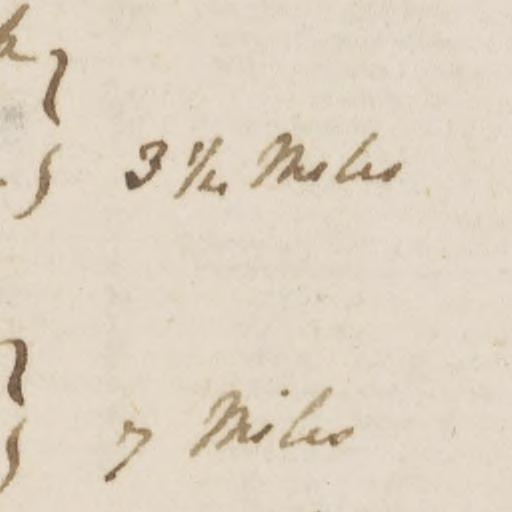 3 1/2 Miles
7 Miles